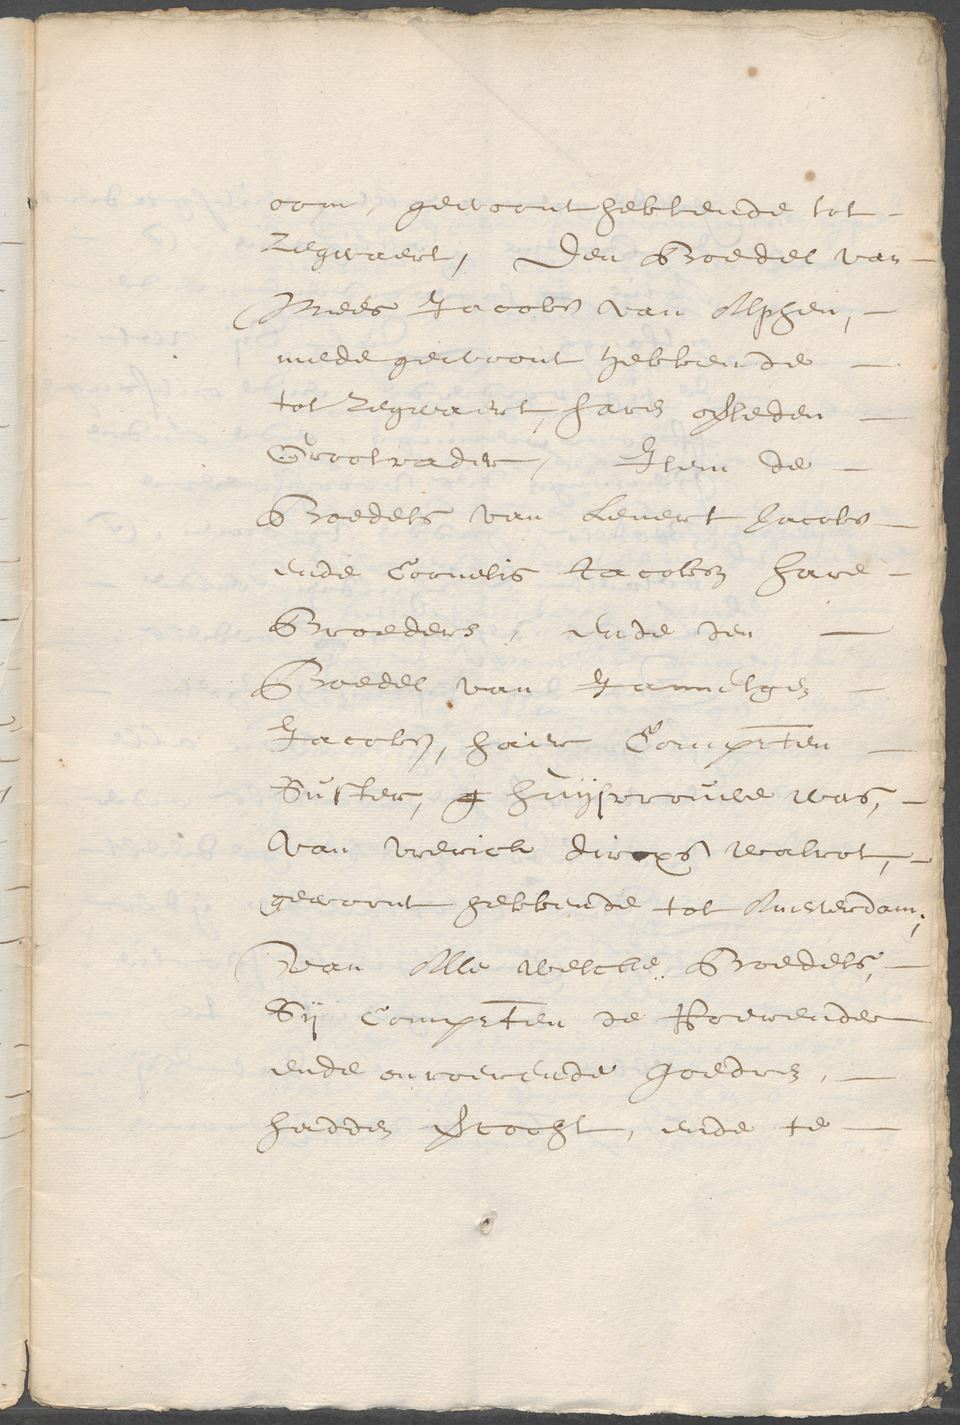 oom, gewoont hebbende tot -
Zegwaert, Den Boedel van -
Mees Jacobs van Alphen, -
mede gewoont hebbende -
tot Zegwaert, hare overleden -
Grootvader, Item de -
Boedels van Leuert Jacobs -
ende Cornelis Jacobsz hare -
Broeders, ende den -
Boedel van Jannetgen -
Jacobs, haer Compten -
Suster, die huijsvrouwe was, -
van vrerick dircxs walrot, -
gewoont hebbende tot Amsterdam;
Van Alle welcke Boedels, -
Sij Compten de Roerende -
ende onroerende goedren, -
hadden vercocht, ende te -